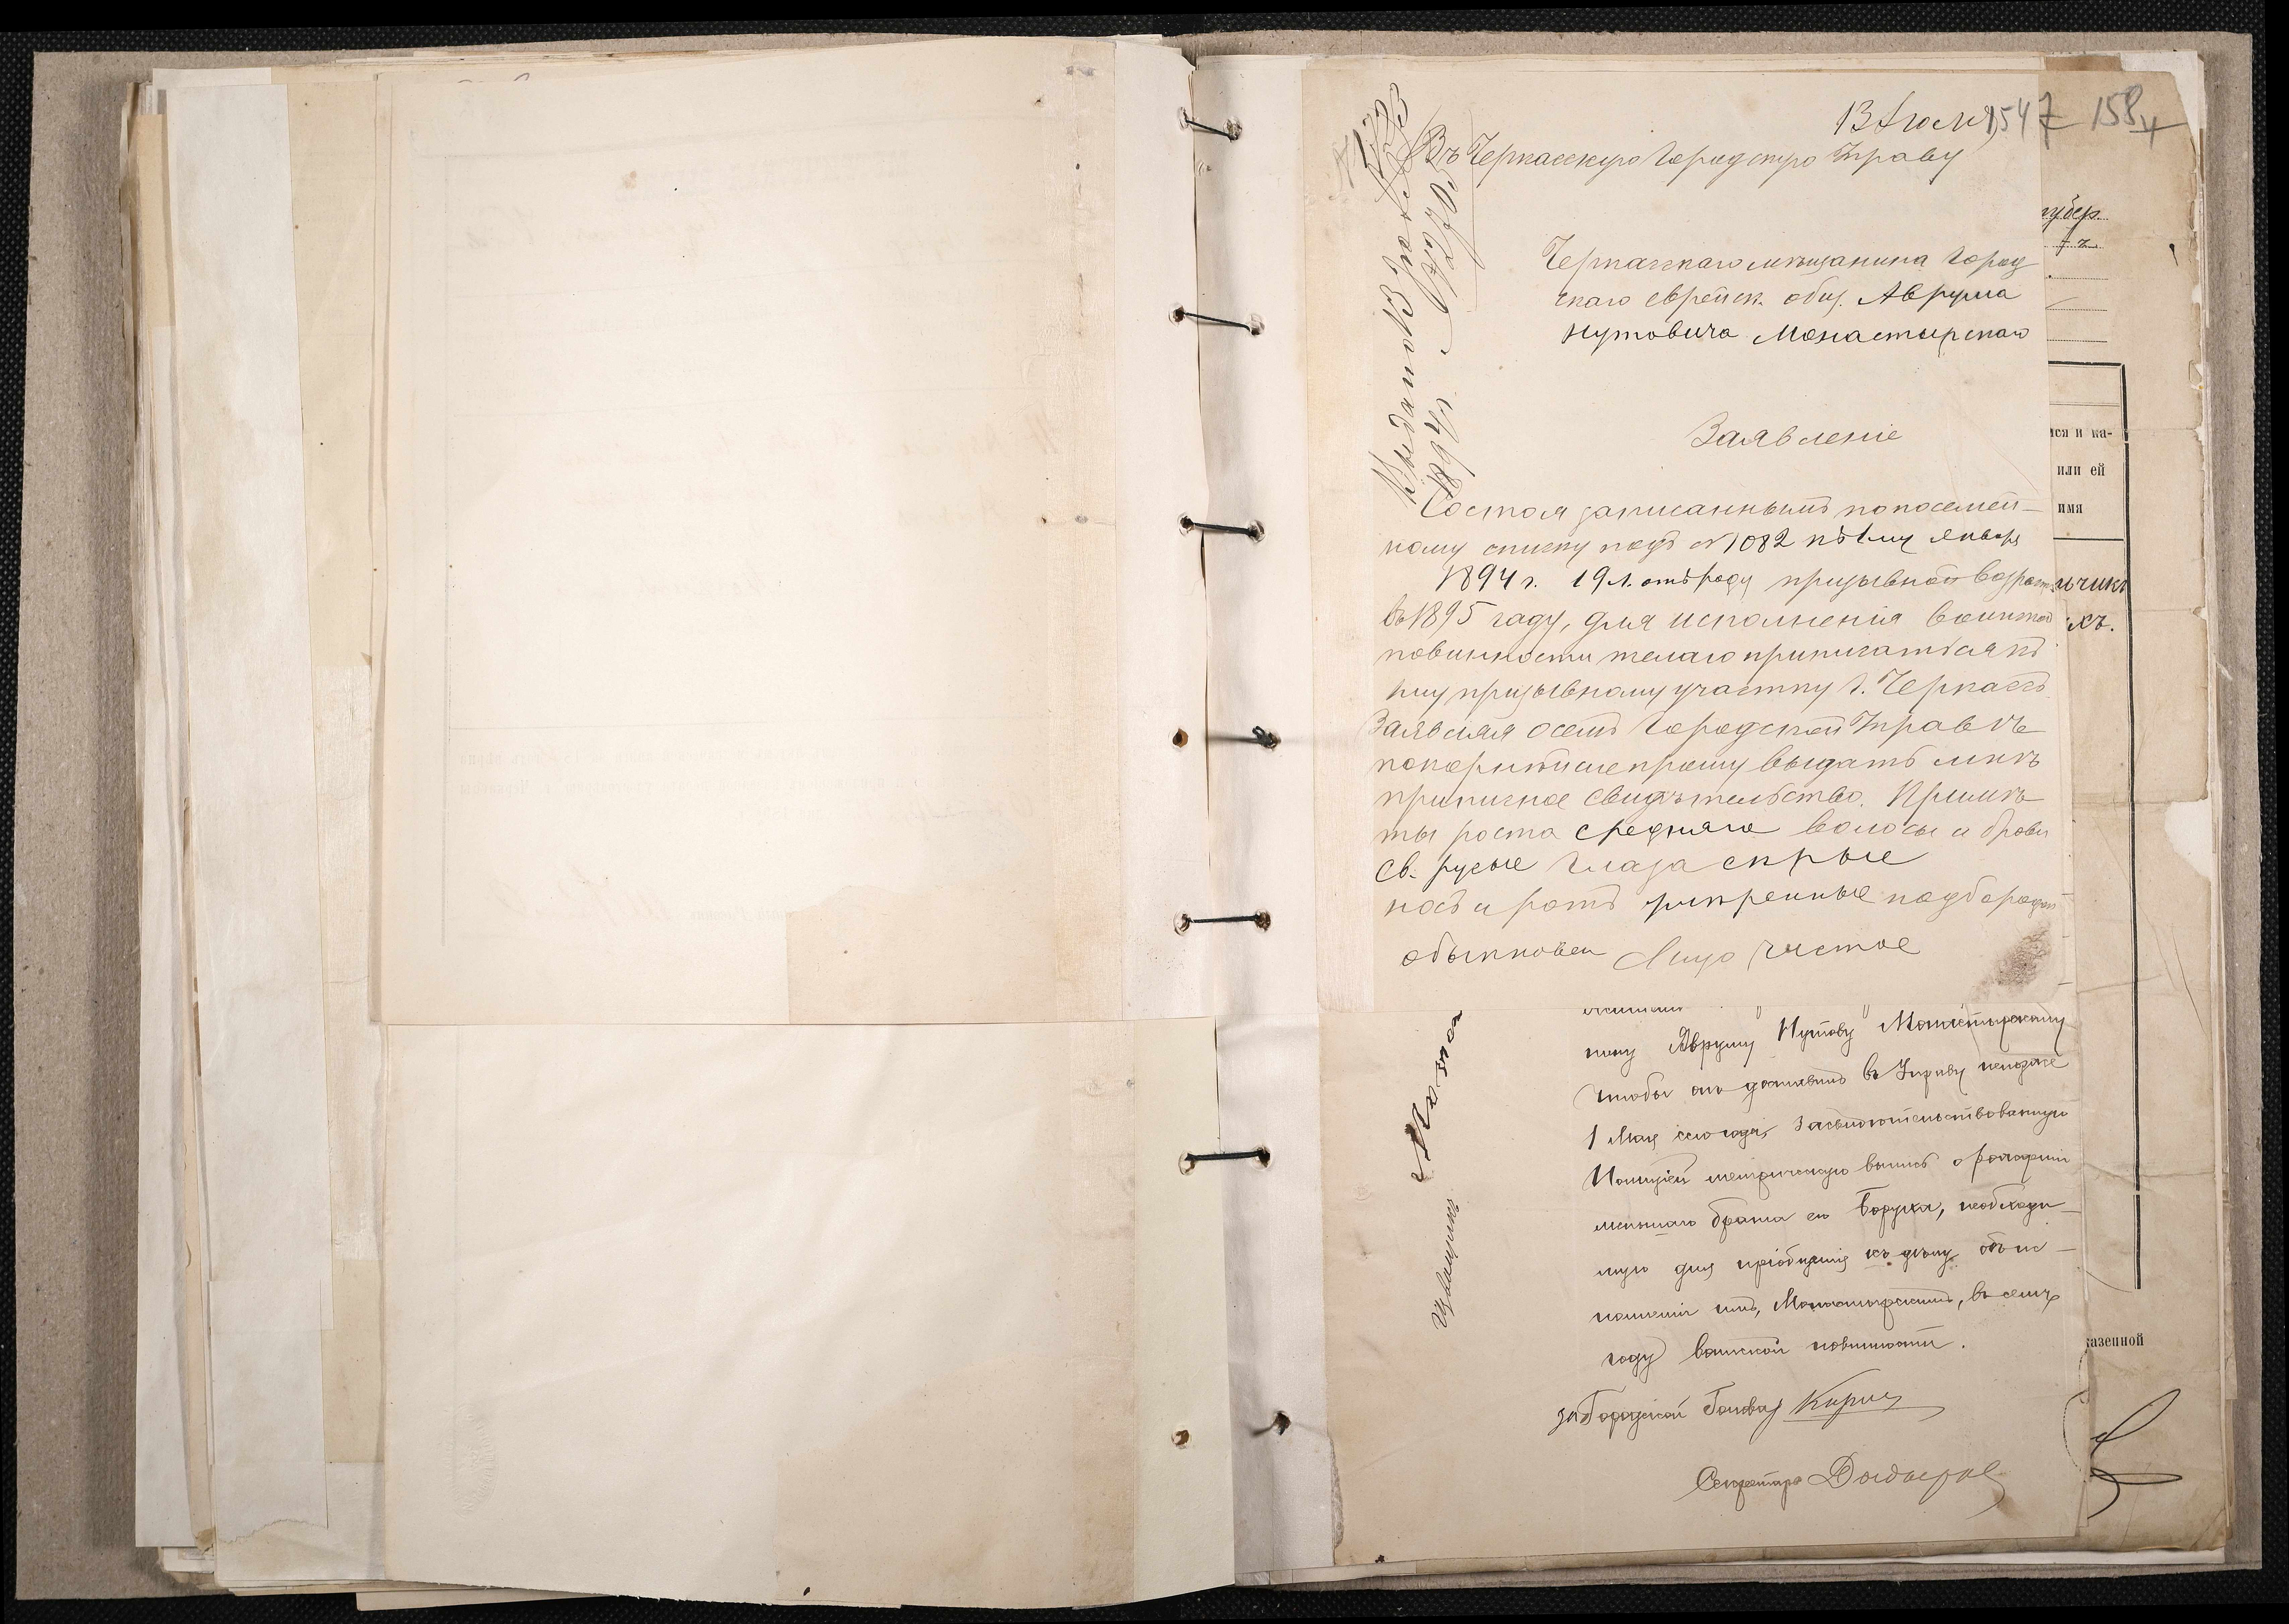 13 Июля 1547 158
Въ Черкасскую Городскую Управу
Черкасскаго мѣщанина город
скаго еврейск. общ. Аврума
Нутовича Монастырскаго
Заявленіе
Состоя записаннымъ по посемей-
ному списку подъ № 1082 къ 1му Января
1894 г. 19 л. отъ роду призывной возраст
въ 1895 году, для исполненія воинской
повинности желаю приписаться къ
1му призывному участку г. Черкассъ
Заявляя о семъ Городской Управѣ
покорнѣйше прошу выдать мнѣ
приписное свидѣтельство. Примѣ
ты роста средняго волосы и брови
св. русые глаза сѣрые
носъ и ротъ умѣренные подбородокъ
обыкновен Лицо чистое
Выдано
1894 г. № 2705
Авруму Нутову Монастырскому
чтобы онъ доставилъ въ Управу не позже
1 Мая сего года, засвидѣтельствованную
Полиціей метрическую выпись о рожденіи
меньшаго брата его Боруха, необходи-
мую для пріобщенія къ дѣлу объ ис-
полненіи имъ, Монастырскимъ, въ семъ
году воинской повинности.
за Городской Голова
Секретарь
губер.
ся и ка-
или ей
имя
льчикъ
хъ.
казенной